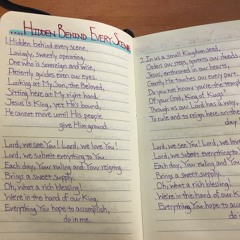 ....HIDDEN BEHIND EVERY SCENE
1 Hidden behind every scene,
Lovingly, sweetly operating,
One who is Sovereign and wise,
Patiently guides even our eyes.
Looking at My Son, the Beloved,
Sitting here at My right hand.
Jesus is King, yet He's bound,
He cannot move until His people
give Him ground.
Lord, we see You! Lord, we love You!
Lord, we submit everything to You.
Each day, Your ruling and Your reigning
Brings a sweet supply.
Oh, what a rich blessing!
We're in the hand of our King,
Everything You hope to accomplish,
do in me.
2 In us a small kingdom seed,
Orders our steps, governs our needs
Jesus, enthroned in our hearts
Gently He touches every part.
Do you now honor the temple
Of your God, King of Kings?
Through us our Lord has a way,
To rule and to reign here on
day
Lord, we see You! Lord, we love You!
Lord, we submit everything to You.
Each day, Your ruling and Your
Brings a sweet supply.
Oh, what a rich blessing!
We're in the hand of our King,
Everything You hope to accomplish,
do in me.